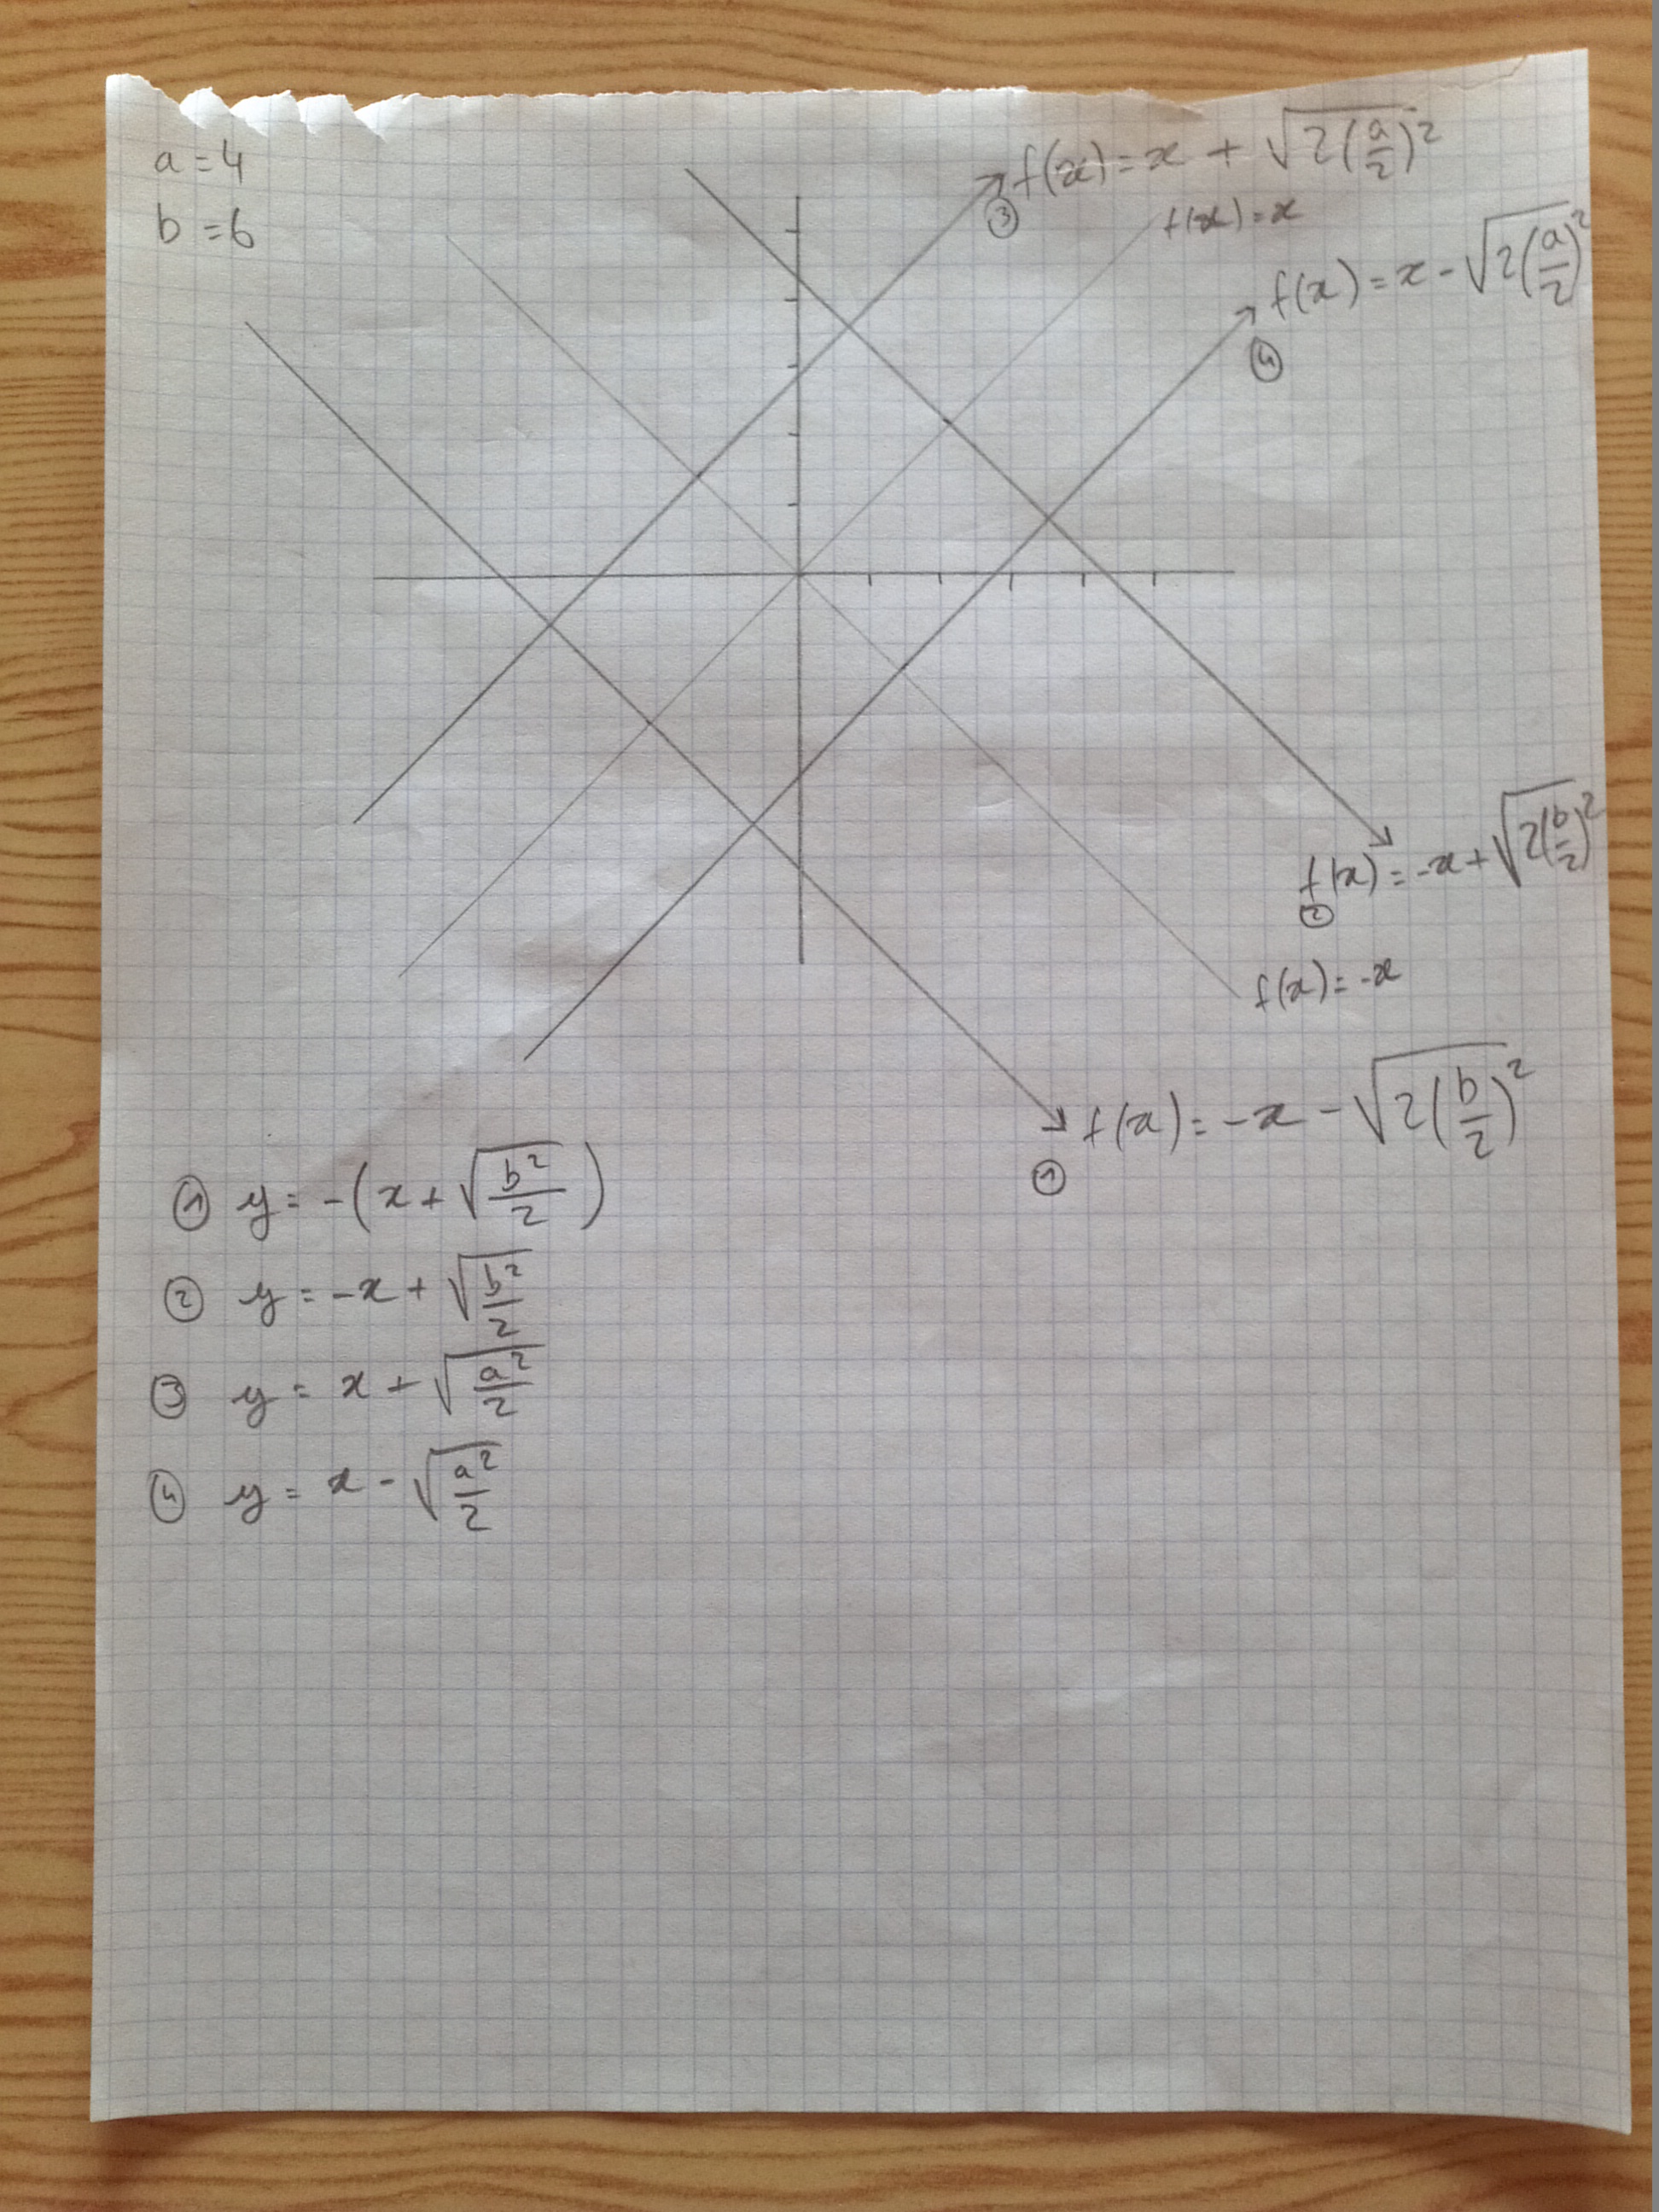 a = 4
b = 6
③ f(x) = x + √2(a/2)²
f(x) = x
④ f(x) = x - √2(a/2)²
② f(x) = -x + √2(b/2)²
f(x) = -x
① f(x) = -x - √2(b/2)²
① y = -(x + √b²/2)
② y = -x + √b²/2
③ y = x + √a²/2
④ y = x - √a²/2